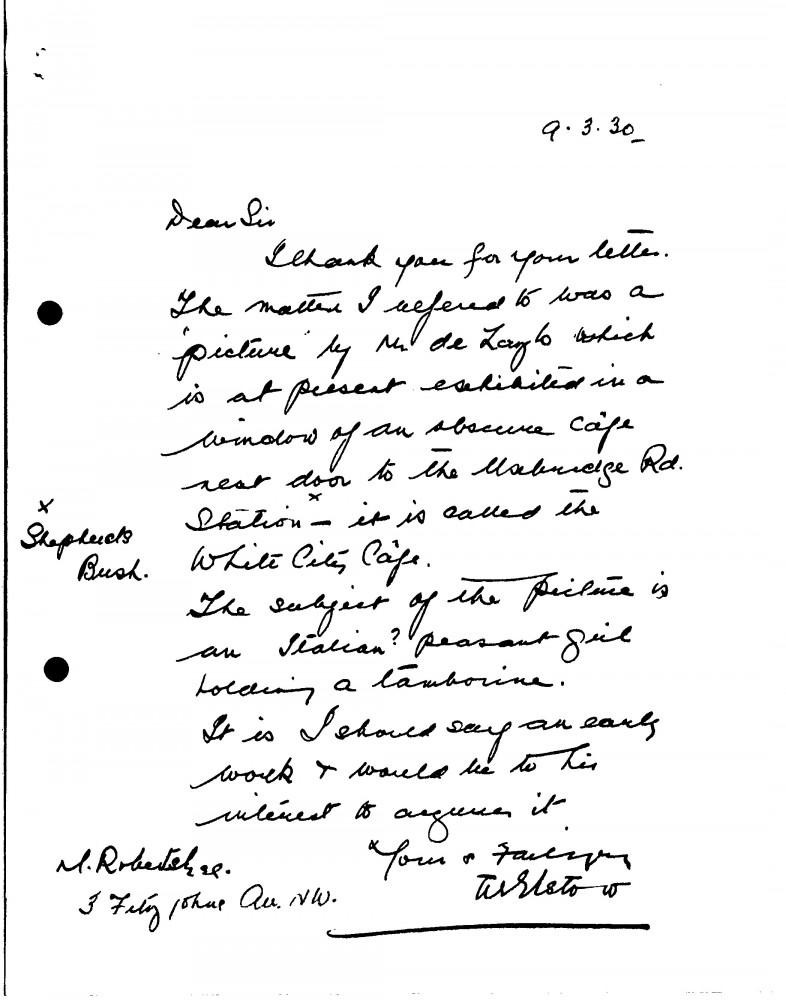 9.3.30
Dear Sir
I thank you for your letter.
The matter I refered to was a
'picture' by Mr de Laszlo which
is at present exhibited in a
window of an obscure Café
next door to the Uxbridge Rd.
Station x – it is called the
x
Shepherds
Bush.
White City Café.
The subject of the picture is
an Italian? peasant girl
holding a tamborine.
It is I should say an early
work & would be to his
interest to acquire it
Yours Faithfully
Elstow
M. Roberts Esq.
3 Fitz Johns Av. NW.